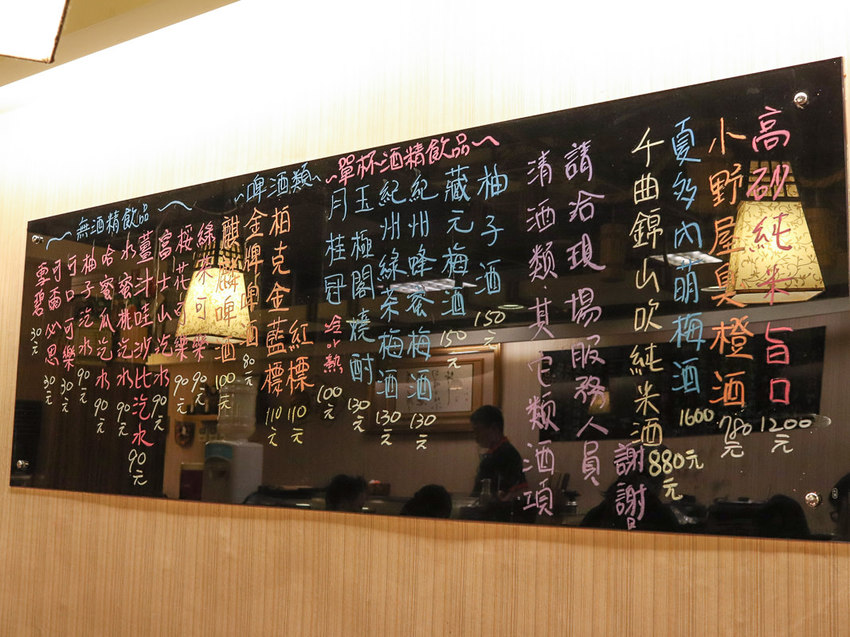 高砂純米旨口 1200元
小野屋臭橙酒 780元
夏多內萌梅酒 1600
千曲錦山吹純米酒 880元
清酒類.其它類酒項
請洽現場服務人員
謝謝
~單杯酒精飲品~
柚子酒 150元
藏元梅酒 150元
紀州蜂蜜梅酒 130元
紀州綠茶梅酒 130元
玉極閣燒酎 130元
月桂冠 冷/熱 100元
~啤酒類~
柏克金 紅標 110元
藍標 110元
金牌啤酒 80元
麒麟啤酒 100元
~無酒精飲品~
綠茶可樂 90元
桜花可樂 90元
富士山汽水 90元
薑汁哇沙比汽水 90元
水蜜桃汽水 90元
哈蜜瓜汽水 90元
柚子汽水 90元
可口可樂 30元
可雨必思 30元
雪碧 30元